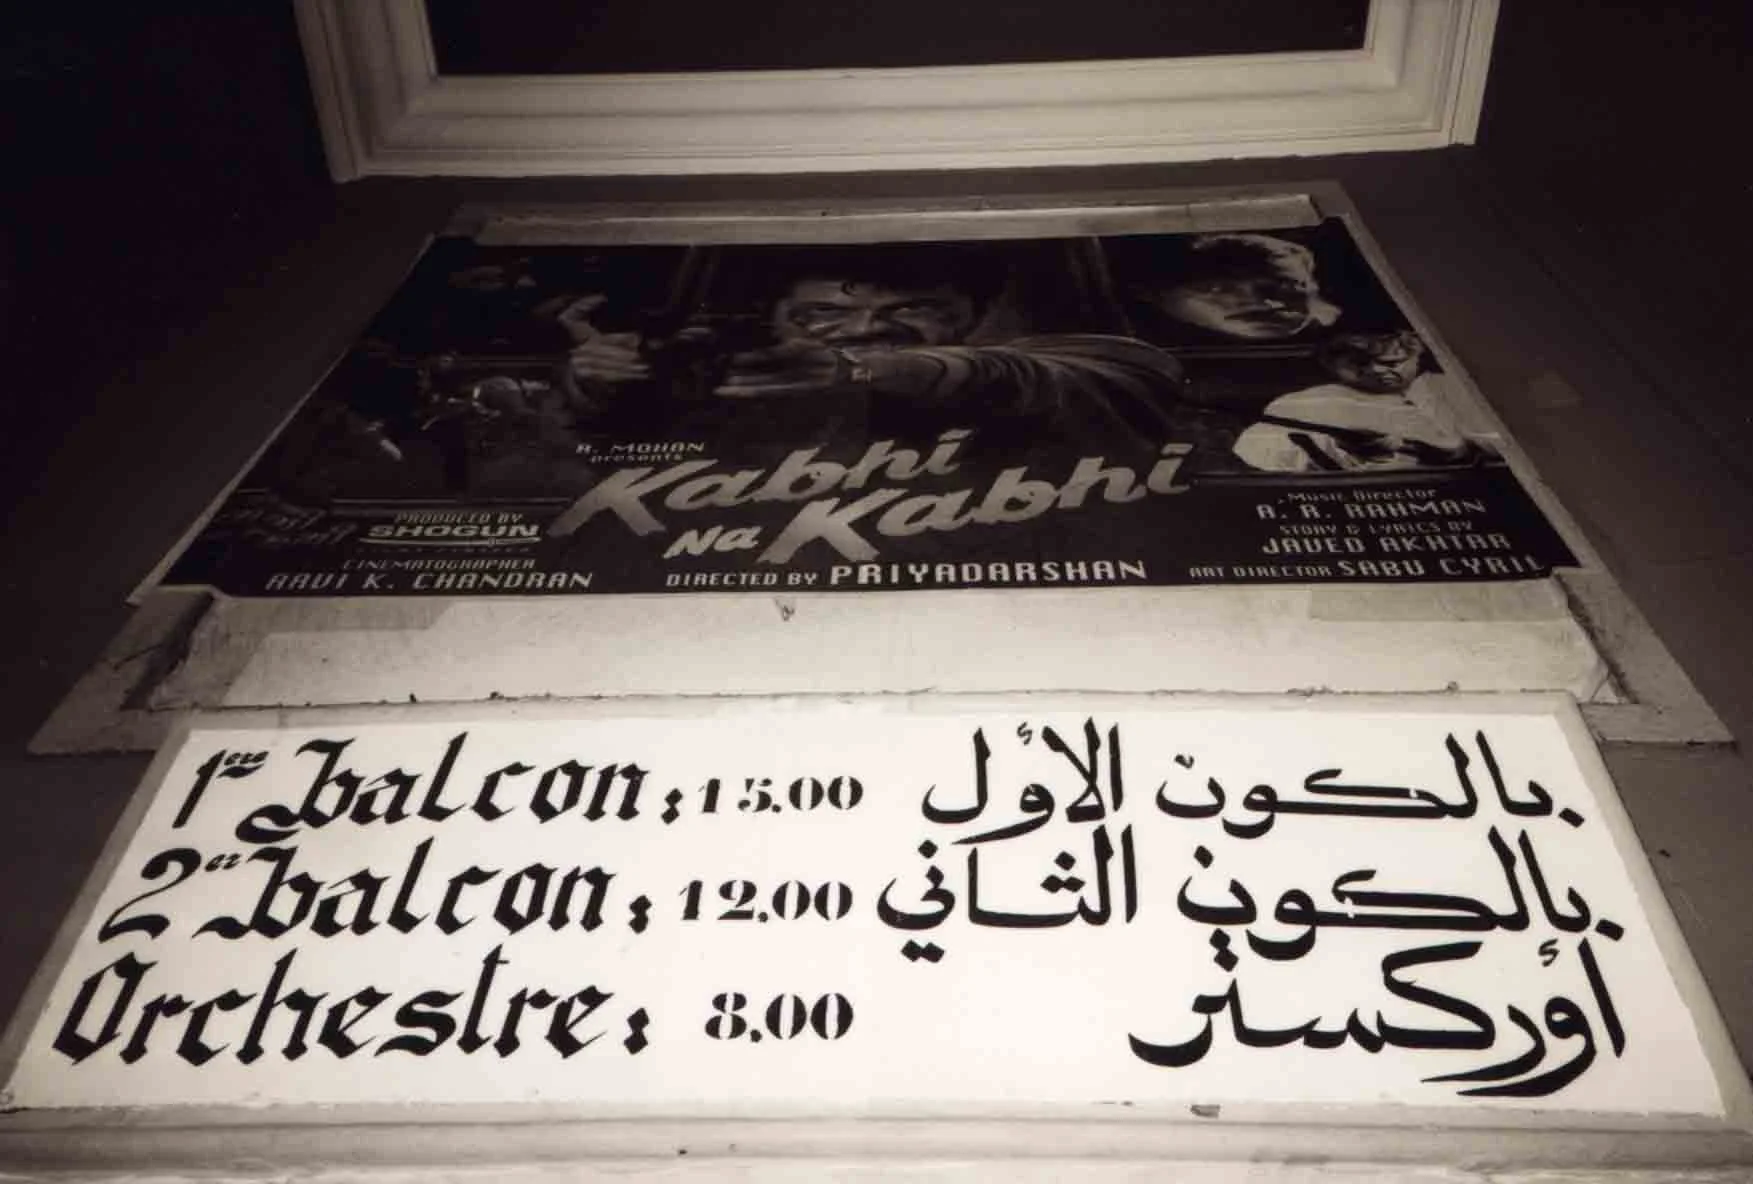 R. MOHAN
presents
Kabhi
Na Kabhi
PRODUCED BY
SHOGUN
CINEMATOGRAPHER
RAVI K. CHANDRAN
DIRECTED BY PRIYADARSHAN
Music Director
A. R. RAHMAN
STORY & LYRICS BY
JAVED AKHTAR
ART DIRECTOR SABU CYRIL
1ere balcon : 15.00 بالكون الأول
2er balcon : 12.00 بالكون الثاني
Orchestre : 8.00 أوركستر